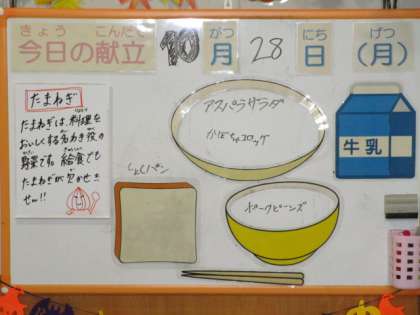 きょう こんだて がつ にち げつ
今日の献立 10 月 28 日 (月)
たまねぎ
たまねぎは、料理を
おいしくする名わき役の
野菜です。給食でも
たまねぎが欠かせま
せん!!
アスパラサラダ
かぼちゃコロッケ
牛乳
しょくパン
ポークビーンズ